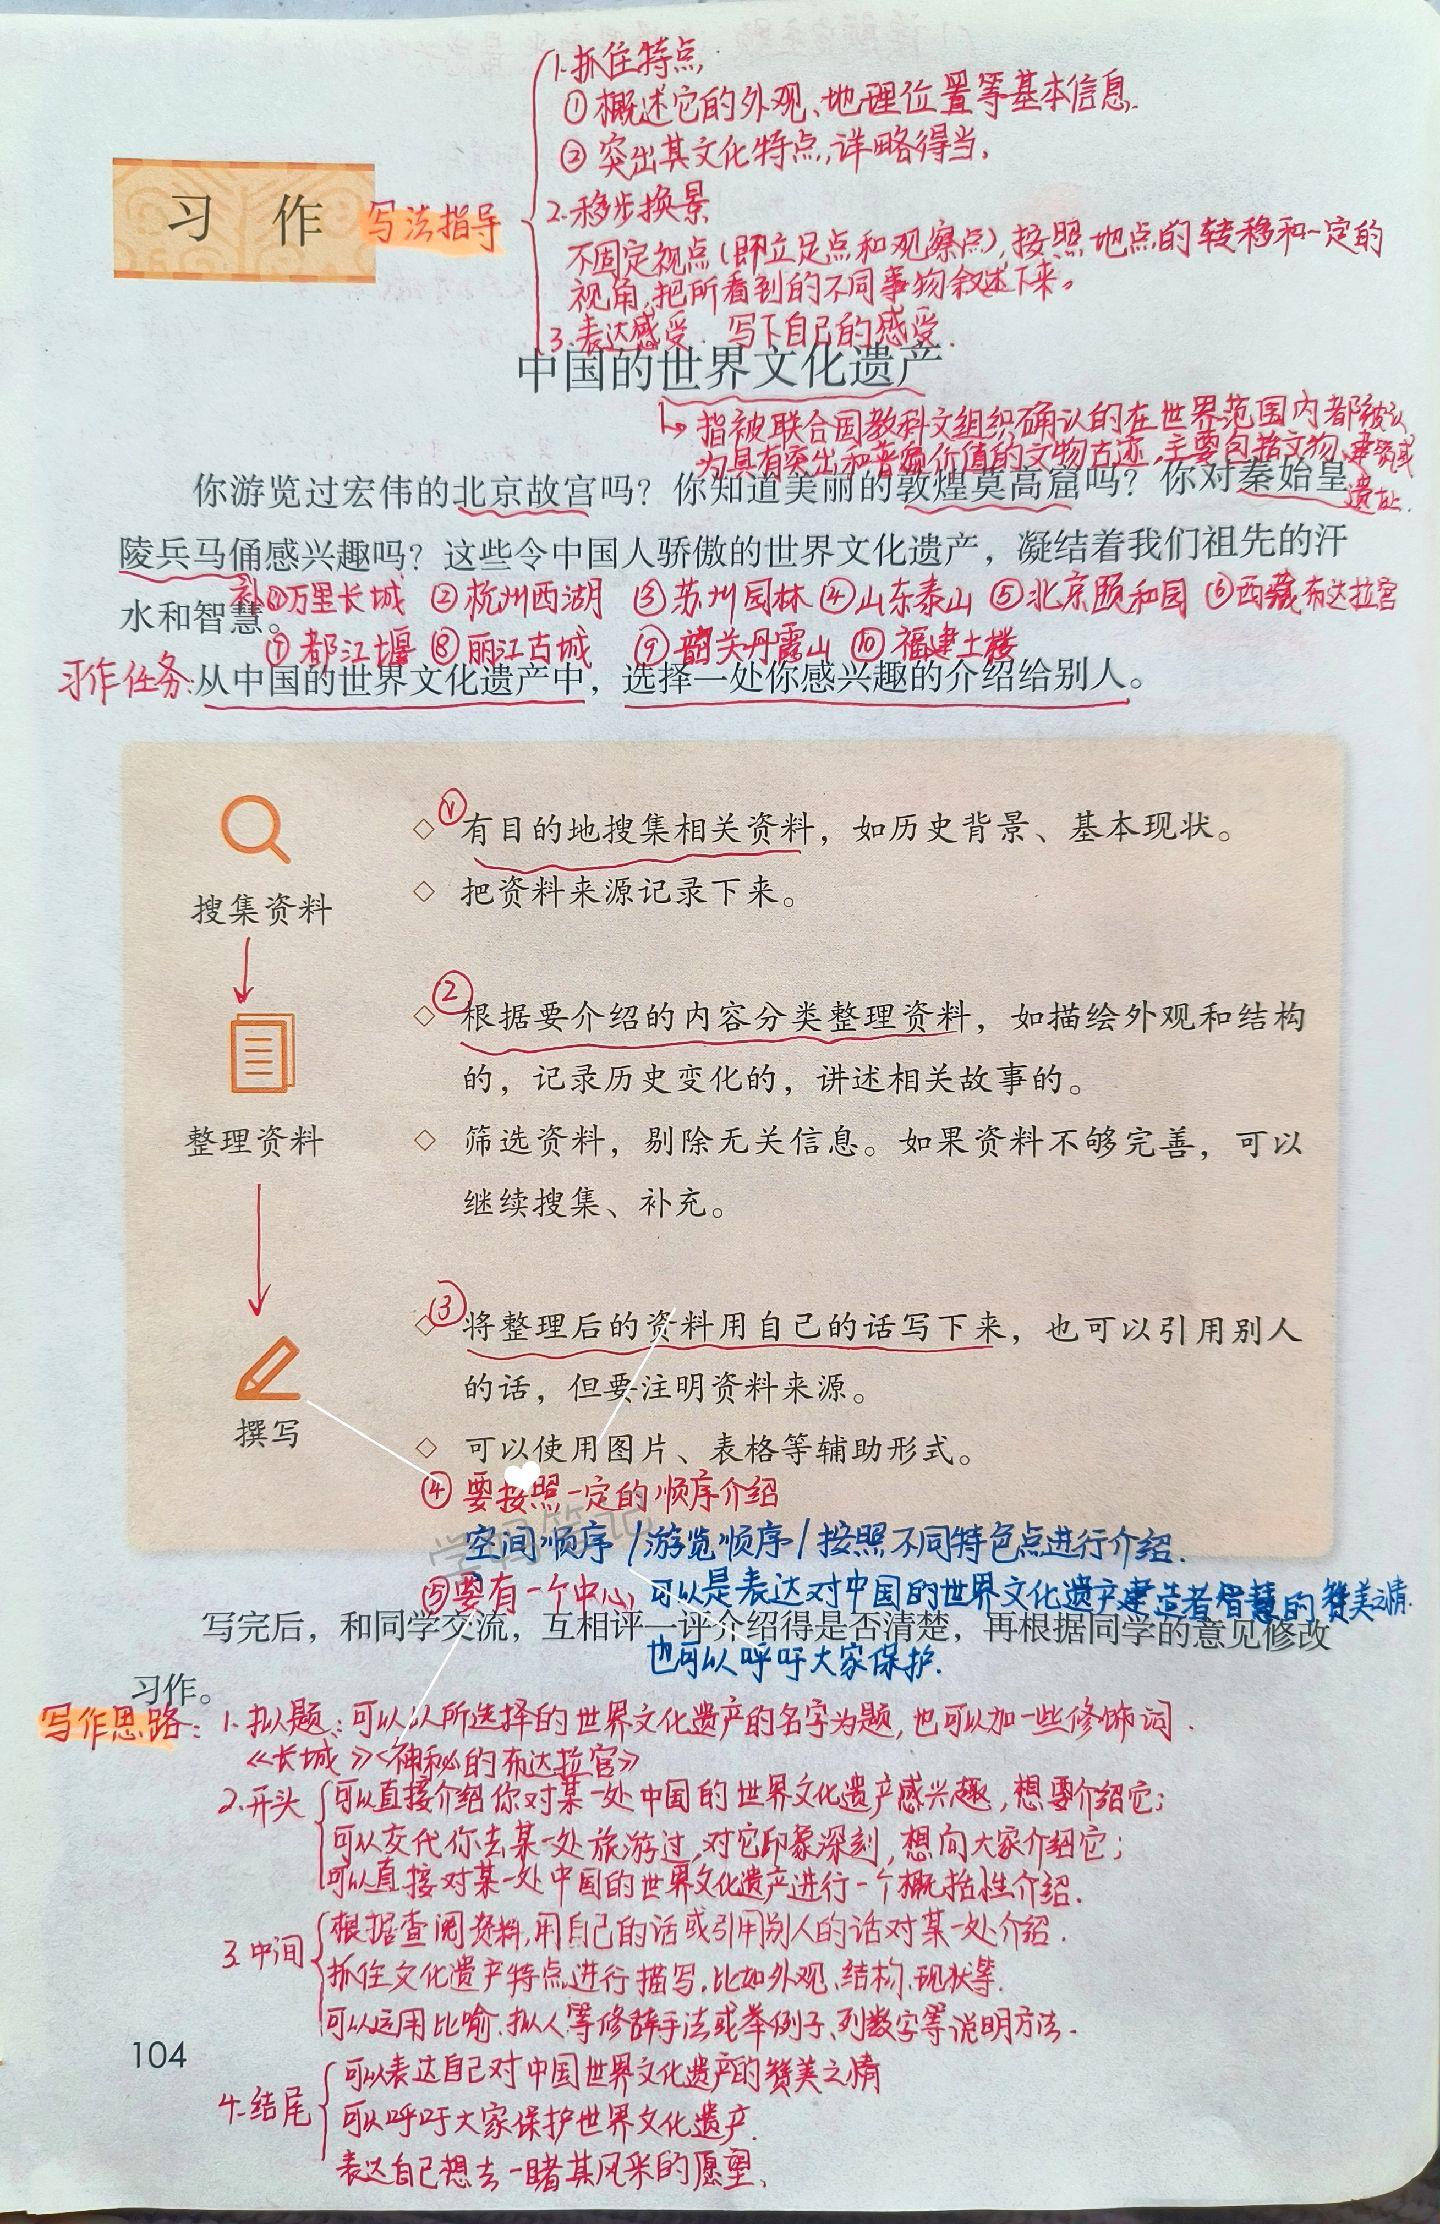 1.抓住特点,
①概述它的外观、地理位置等基本信息.
②突出其文化特点,详略得当.
习 作
写法指导
2.移步换景
不固定视点(即立足点和观察点),按照地点的转移和一定的
视角,把所看到的不同事物叙述下来。
3.表达感受. 写下自己的感受.
中国的世界文化遗产
↳指被联合国教科文组织确认的在世界范围内都被认
为具有突出和普遍价值的文物古迹,主要包括文物、建筑或
遗址.
你游览过宏伟的北京故宫吗?你知道美丽的敦煌莫高窟吗?你对秦始皇
陵兵马俑感兴趣吗?这些令中国人骄傲的世界文化遗产,凝结着我们祖先的汗
补:①万里长城 ②杭州西湖 ③苏州园林 ④山东泰山 ⑤北京颐和园 ⑥西藏布达拉宫
水和智慧。
⑦都江堰 ⑧丽江古城 ⑨韶关丹霞山 ⑩福建土楼
习作任务:从中国的世界文化遗产中,选择一处你感兴趣的介绍给别人。
搜集资料
①◇ 有目的地搜集相关资料,如历史背景、基本现状。
◇ 把资料来源记录下来。
整理资料
②◇ 根据要介绍的内容分类整理资料,如描绘外观和结构
的,记录历史变化的,讲述相关故事的。
◇ 筛选资料,剔除无关信息。如果资料不够完善,可以
继续搜集、补充。
撰写
③◇ 将整理后的资料用自己的话写下来,也可以引用别人
的话,但要注明资料来源。
◇ 可以使用图片、表格等辅助形式。
④要按照一定的顺序介绍
学习笔记
空间顺序/游览顺序/按照不同特色点进行介绍.
⑤要有一个中心,可以是表达对中国的世界文化遗产建造者智慧的赞美之情.
写完后,和同学交流,互相评一评介绍得是否清楚,再根据同学的意见修改
也可以呼吁大家保护.
习作。
写作思路:1.拟题:可以以所选择的世界文化遗产的名字为题,也可以加一些修饰词.
《长城》《神秘的布达拉宫》
2.开头
可以直接介绍你对某一处中国的世界文化遗产感兴趣,想要介绍它;
可以交代你去某一处旅游过,对它印象深刻,想向大家介绍它;
可以直接对某一处中国的世界文化遗产进行一个概括性介绍.
3.中间
根据查阅资料,用自己的话或引用别人的话对某一处介绍.
抓住文化遗产特点进行描写.比如外观、结构、现状等.
可以运用比喻、拟人等修辞手法或举例子、列数字等说明方法.
104
4.结尾
可以表达自己对中国世界文化遗产的赞美之情
可以呼吁大家保护世界文化遗产.
表达自己想去一睹其风采的愿望.